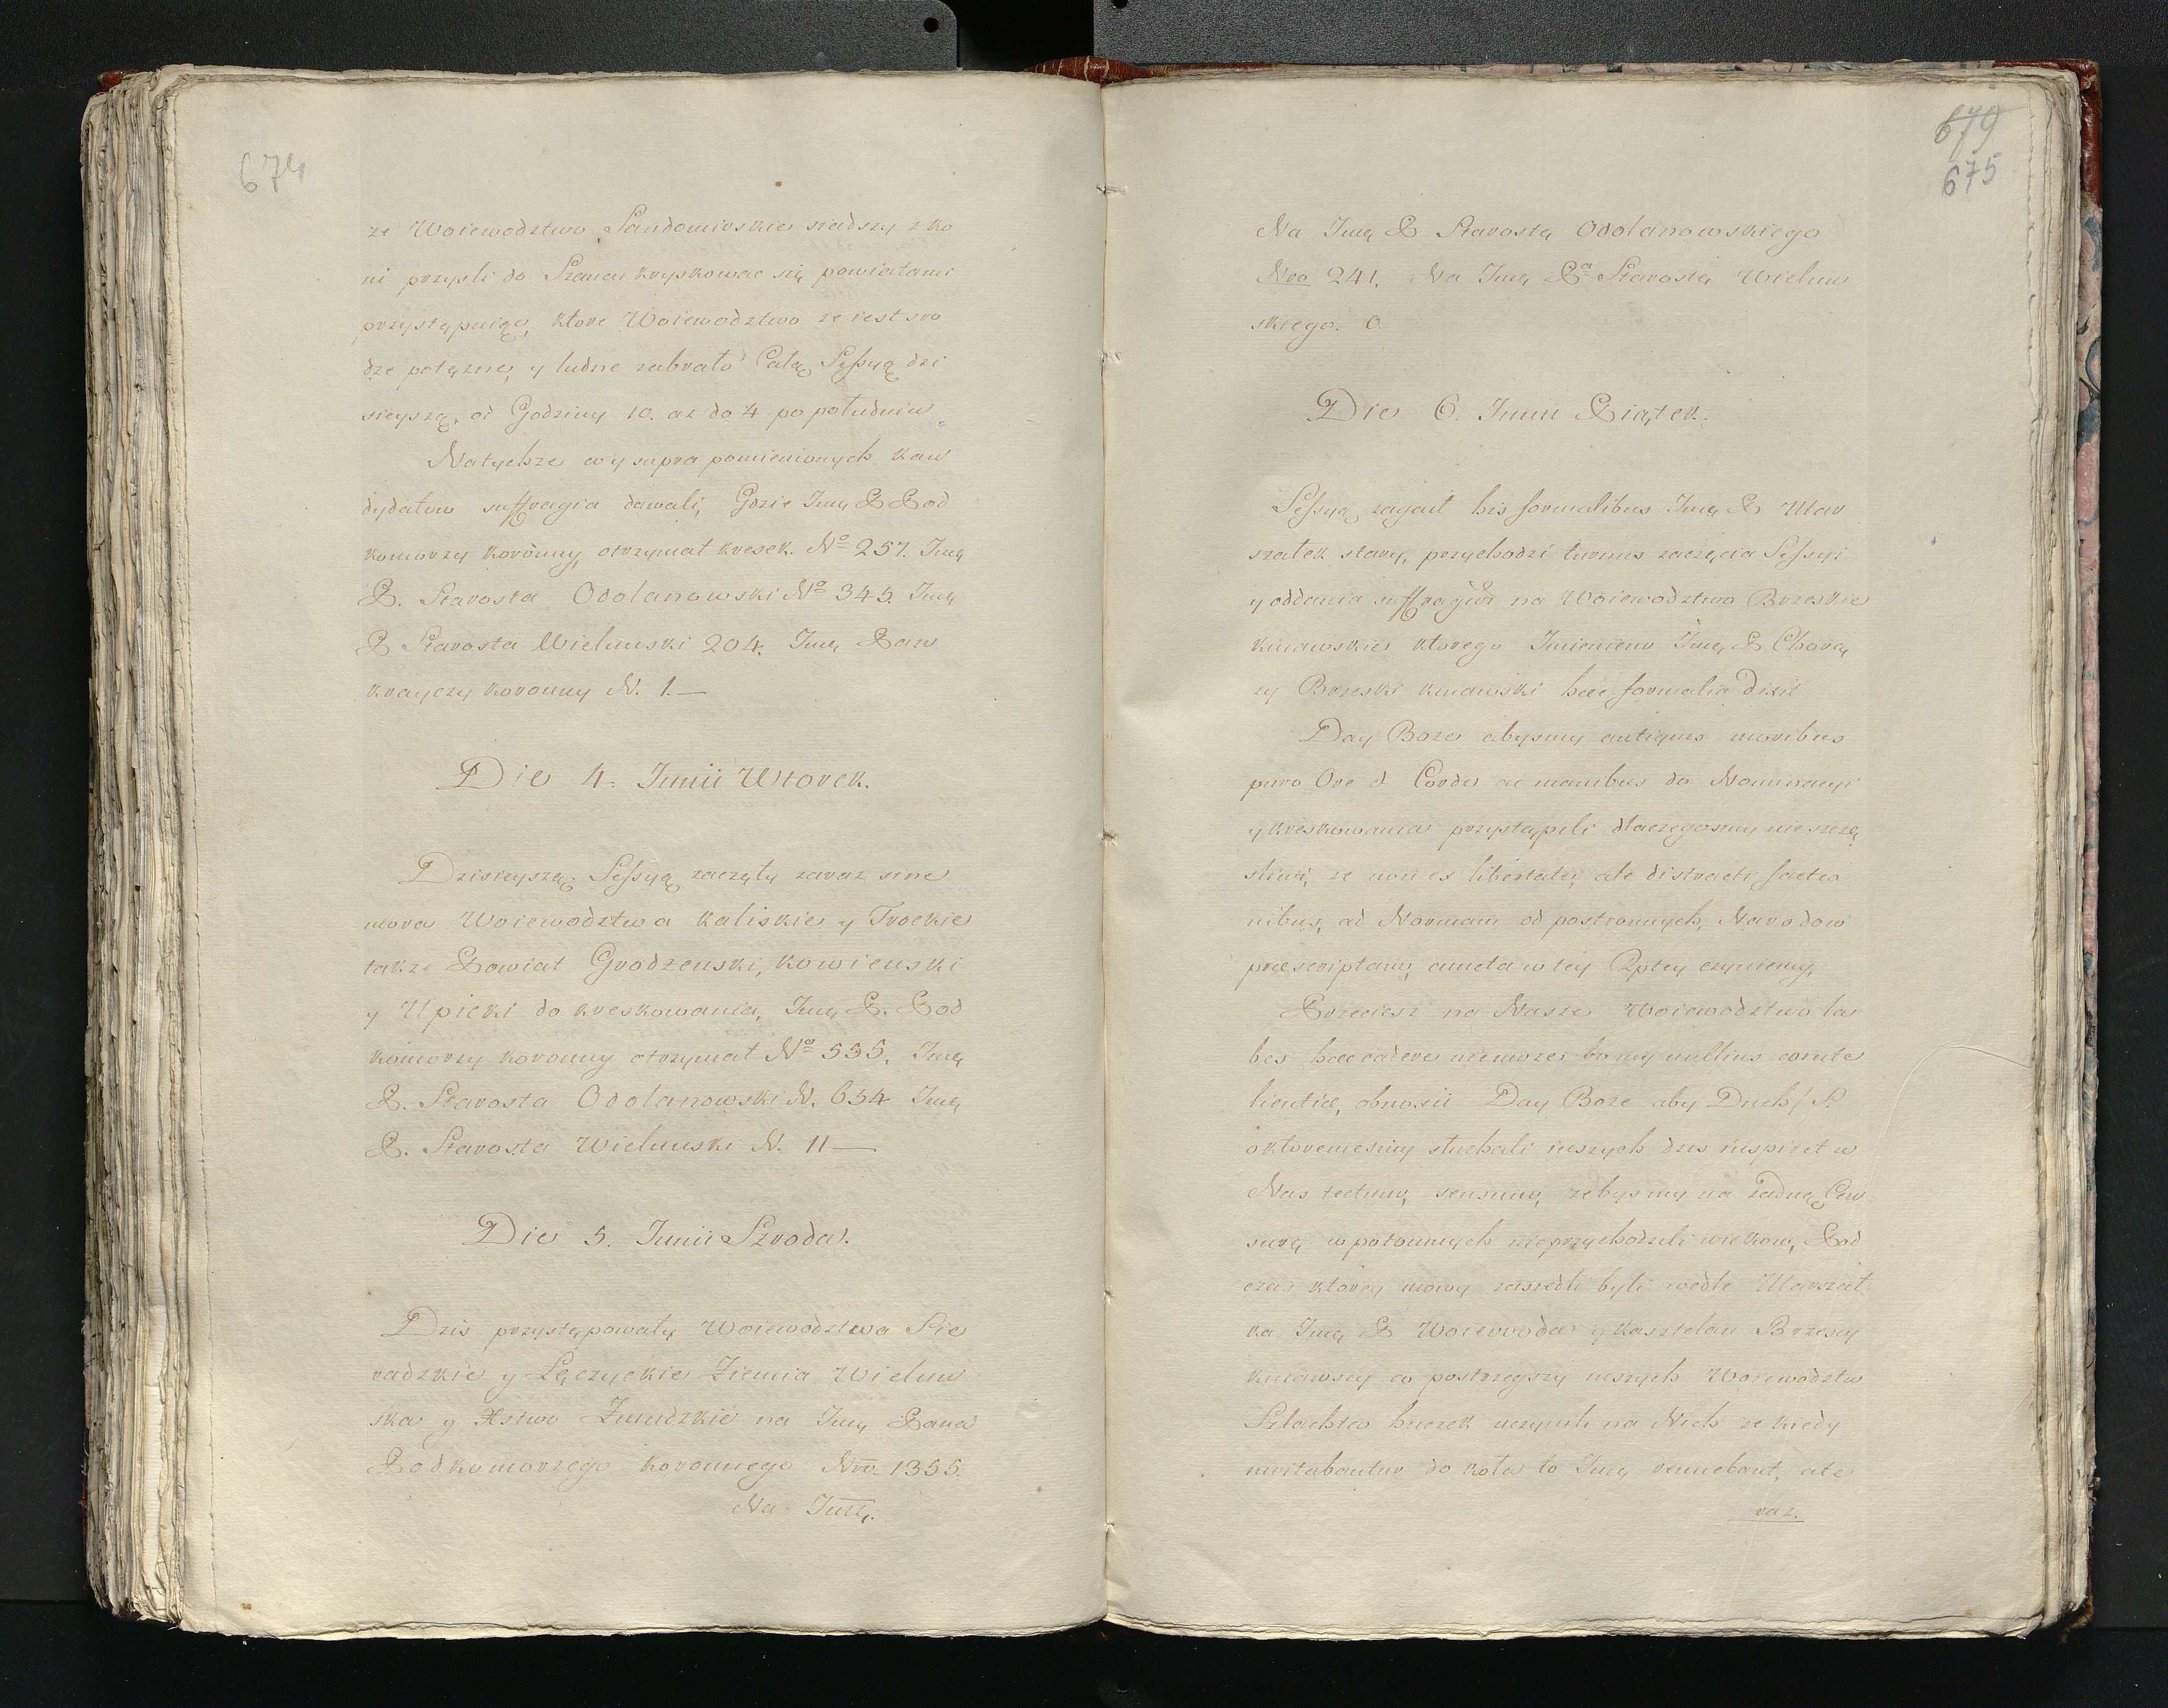 674
ze Woiewodztwo Sandomirskie siadszy z ko
ni przysli do Szancu kryskowac się powiatami
przystępuiąc, ktore Woiewodztwo ze iest sro
dze potęzne, y ludne zabrało Całą Sessyą dzi
sieyszą, od Godziny 10. az do 4 po południu.
Natychze wy supra pomienionych kan
dydatow suffragia dawali, Gdzie Imę P. Pod
komorzy koronny, otrzymał kresek. No 257. Imę
P. Starosta Odolanowski No 345. Imę
P. Starosta Wielunski 204. Imę Pan
krayczy koronny N. 1.—
Die 4. Junii Wtorek.
Dzisieyszą Sessyą zaczęły zaraz sine
mora Woiewodztwa kaliskie y Trockie
takze Powiat Grodzenski, kowienski
y Upicki do kreskowania, Imę P. Pod
komorzy koronny otrzymał No 535. Imę
P. Starosta Odolanowski N. 654 Imę
P. Starosta Wielunski N. 11—
Die 5. Junii Szroda.
Dzis przystępowały Woiewodztwa Sie
radzkie y Łęczyckie Ziemia Wielun
ska y Xstwo Zmudzkie na Imę Pana
Podkomorzego koronnego Nro. 1355.
Na Imę.
679
675
Na Imę P. Starostę Odolanowskiego
Nro 241. Na Imę Pa Starostę Wielun
skiego. 0.
Die 6. Junii Piątek.
Sessyą zagaił his formalibus Imę P. Mar
szałek stary, przychodzi turnus zaczęcia Sessyi
y oddania suffragiow na Woiewodztwo Brzeskie
kuiawskie ktorego Imieniem Imę P. Chorą
zy Brzeski kuiawski haec formalia dixit
Day Boze abysmy antiquis moribus
puro Ore et Corde ac manibus do Nominacyi
y kreskowania przystąpili dlaczegosmy nieszczę
sliwi, ze non ex libertate, ale distracti factio
nibus, ad Normam od postronnych, Narodow
praescriptam, cuncta w tey Rptey czyniemy,
Przeciesz na Nasze Woiewodztwo la
bes haec cadere niemoze bo my nullius corrute
licentiae, obnoxii Day Boze aby Duch S.
o ktoremesmy słuchali inszych dus inspiret w
Nas rectum, sensum, zebysmy na zadną Cen
surę w potomnych nieprzychodzili wiekow, Pod
czas ktorey mowy zasiedli byli wedle Marszał
ka Imę P. Woiewoda y kasztelan Brzescy
kuiawscy co postrzegszy inszych Woiewodztw
Szlachta huczek uczynili na Nich ze kiedy
invitabantur do koła to Imę renuebant, ale
raz.